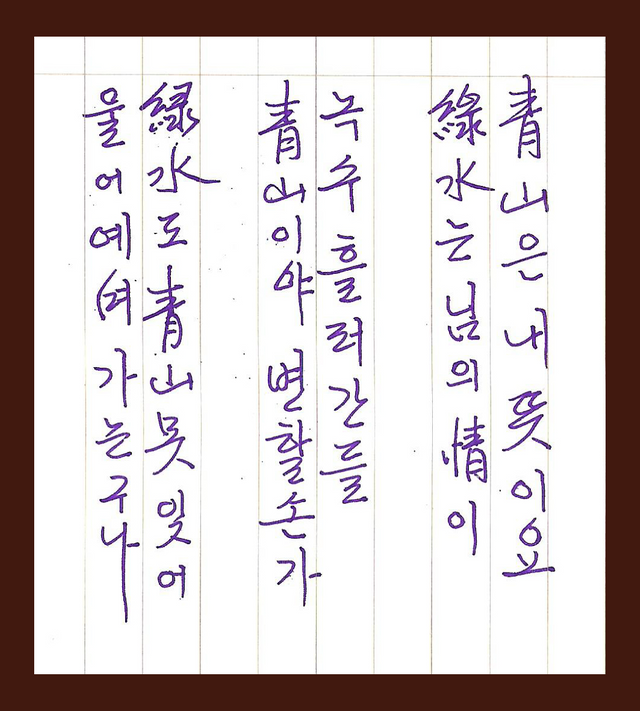 青山은 내 뜻이요
綠水는 님의 情이
녹수 흘러간들
青山이야 변할손가
綠水도 青山 못 잊어
울어예여 가는구나